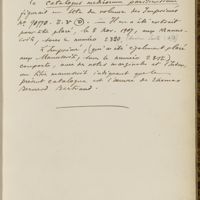 le Catalogus medicorum parisiensium
figurait en tête du volume des Imprimés
N° 90770. — Il en a été extrait
pour être placé, le 8 Nov. 1897, aux Manus-
crits, sous le numéro 2320,
L'Imprimé, (qui a été également placé
aux Manuscrits, sous le numéro
comporte, avec des notes marginales et
un titre manuscrit indiquant que le
présent catalogue est l'œuvre de Thomas
Bernard Bertrand.